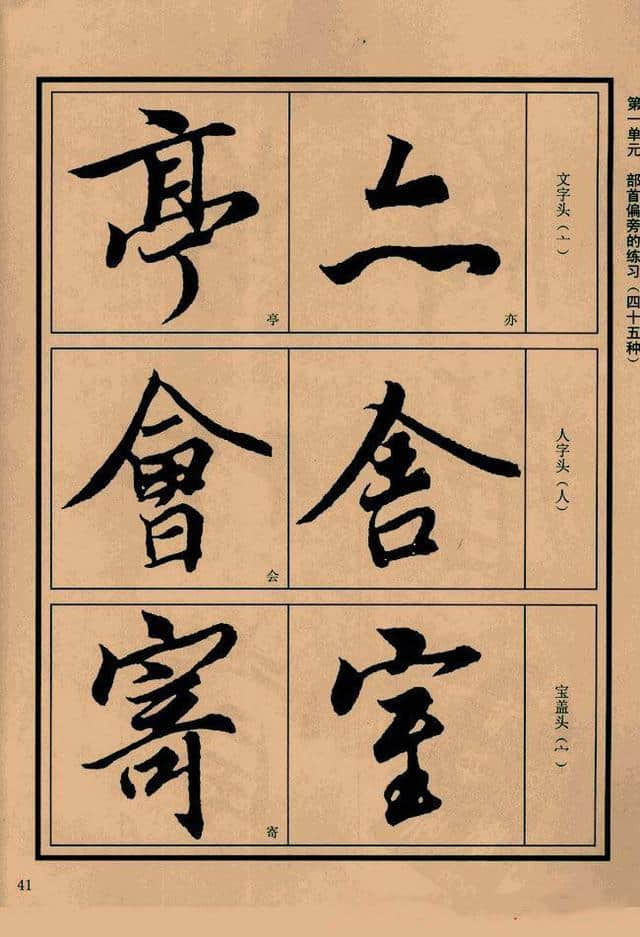 第一单元 部首偏旁的练习（四十五种）
文字头（亠）
亦
亦
亭
亭
人字头（人）
舍
會
会
宝盖头（宀）
室
寄
寄
41